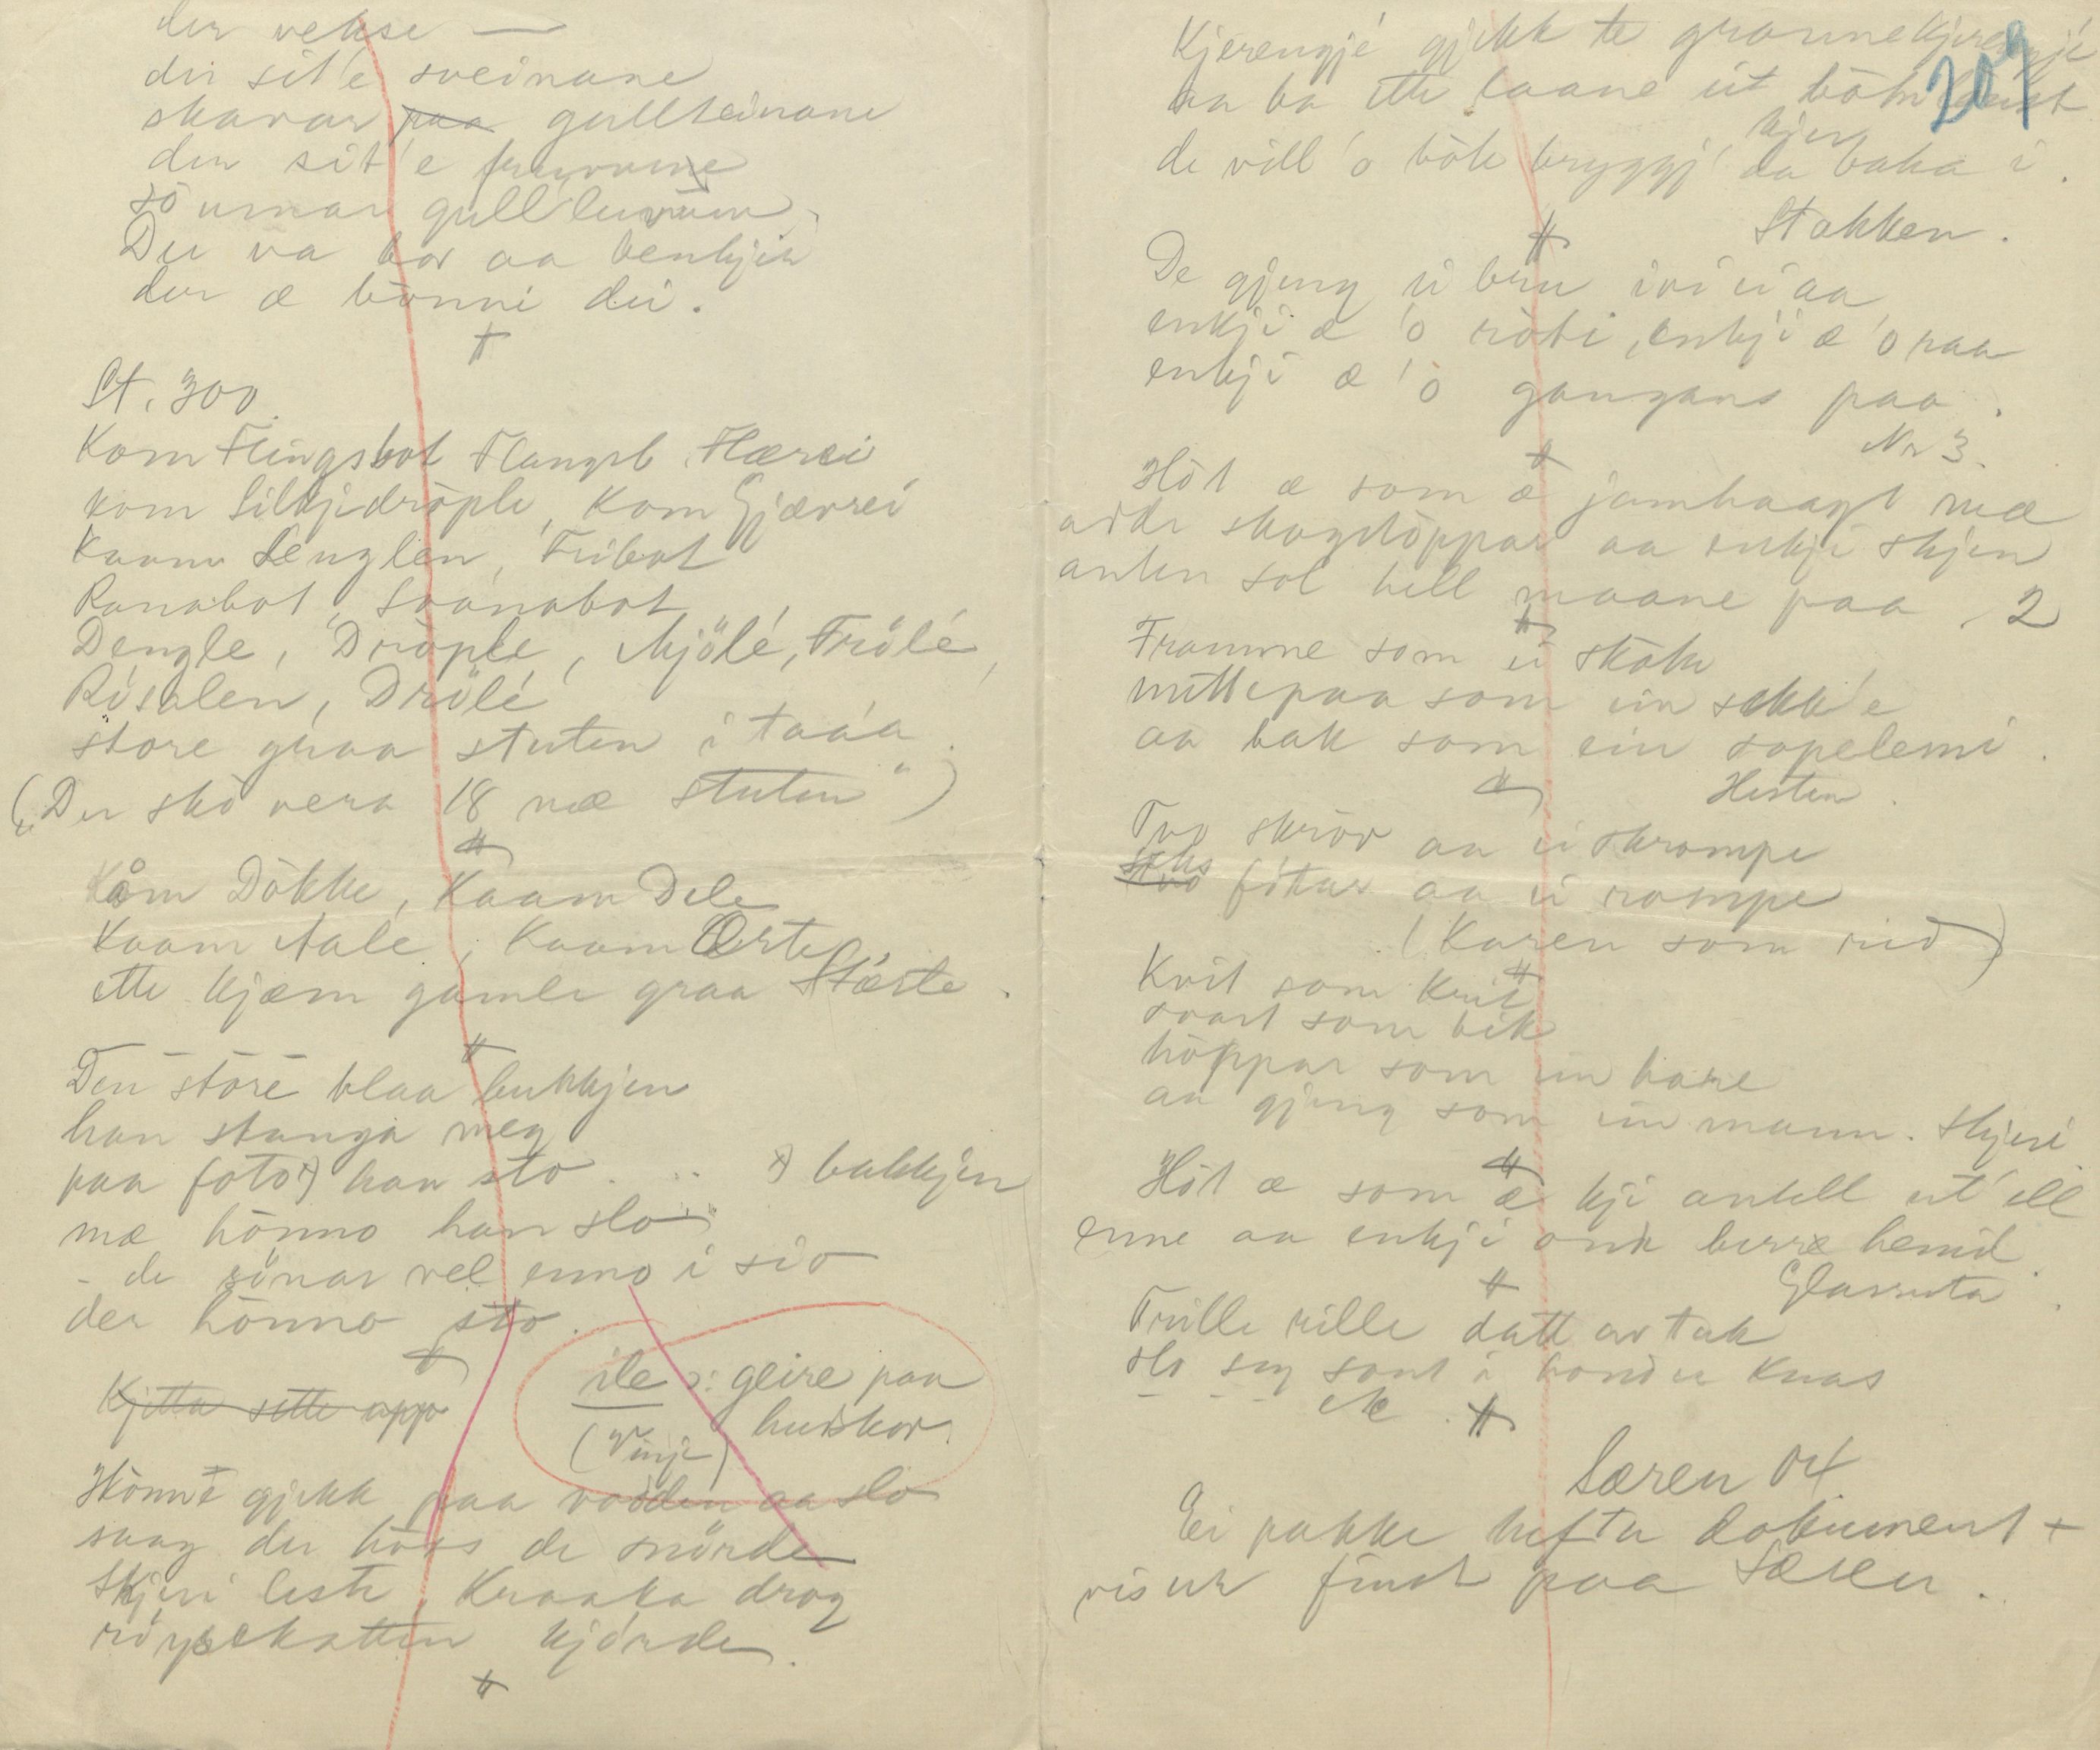 der vekse —
der sit'e sveinane
skavar paa gullteinane
der sit'e fruvune
so umar gull'luvun,
Der va bor aa benkjir
der æ bonni dei.
St. 300.
Kom Flingsbot Flangsb. Flærei
kom Silkjedròple, Kom Gjævrei
Kaam Lenglen, Fribot
Ranabot, Svanabot
Dengle, Dròple, Mjölé, Frölé,
Rósalen, Drölé
store graa stuten i taáa.
("Der sko vera 18 mæ stuten")
Kåm Dòkke, Kaam Dele
Kaam Aale, Kaam Ærte
ette kjæm gamle graa Stærte.
Den store blaa bukkjen
han stanga meg
paa foto x) han sto . . . x) bakkjen
mæ hònno han slo
- de sinar vel enno i sio
der hònno sto.
Kjetta sette upp
ile ɔ: geire paa
hudskor.
(Vinje)
Hònne gjekk paa vodden aa slo
saag der hòss de snórde
Skjeri leste, Kraaka drog
röysekatten kjórde.
Kjerengjé gjekk te grannekjerengjé
209
aa ba ette laane eit
de vill 'o bòte bryggj' da baka i.
kjer
Stakken.
De gjeng ei bru ivi ei aa
enkji æ 'o ròti, enkji æ 'o raa
enkji æ 'o gangans paa.
Nr 3.
Hòt æ som æ jamhaagt mæ
adde skogstòppar aa enkji skjin
anten sol hell maane paa. 2
Framme som ei skòku
mittepaa som ein sekk'e
aa bak som ein sopelemi.
Hesten.
Tvo skròv aa ei skrompe
tvo seks fötar aa ei rompe
(Karen som rid)
Kvit som krit
svart som bik
hòppar som ein hare
aa gjeng som ein mann. Skjeri
Hòt æ som æ kji antell ut' ell
enne aa enkji onn berre hemil.
Glasruta.
Trille rille datt av tak
slo seg sont i hondre knas
- - - etc.
Særen 04.
Ei pakke hefta dokument +
viser finst paa Særen.